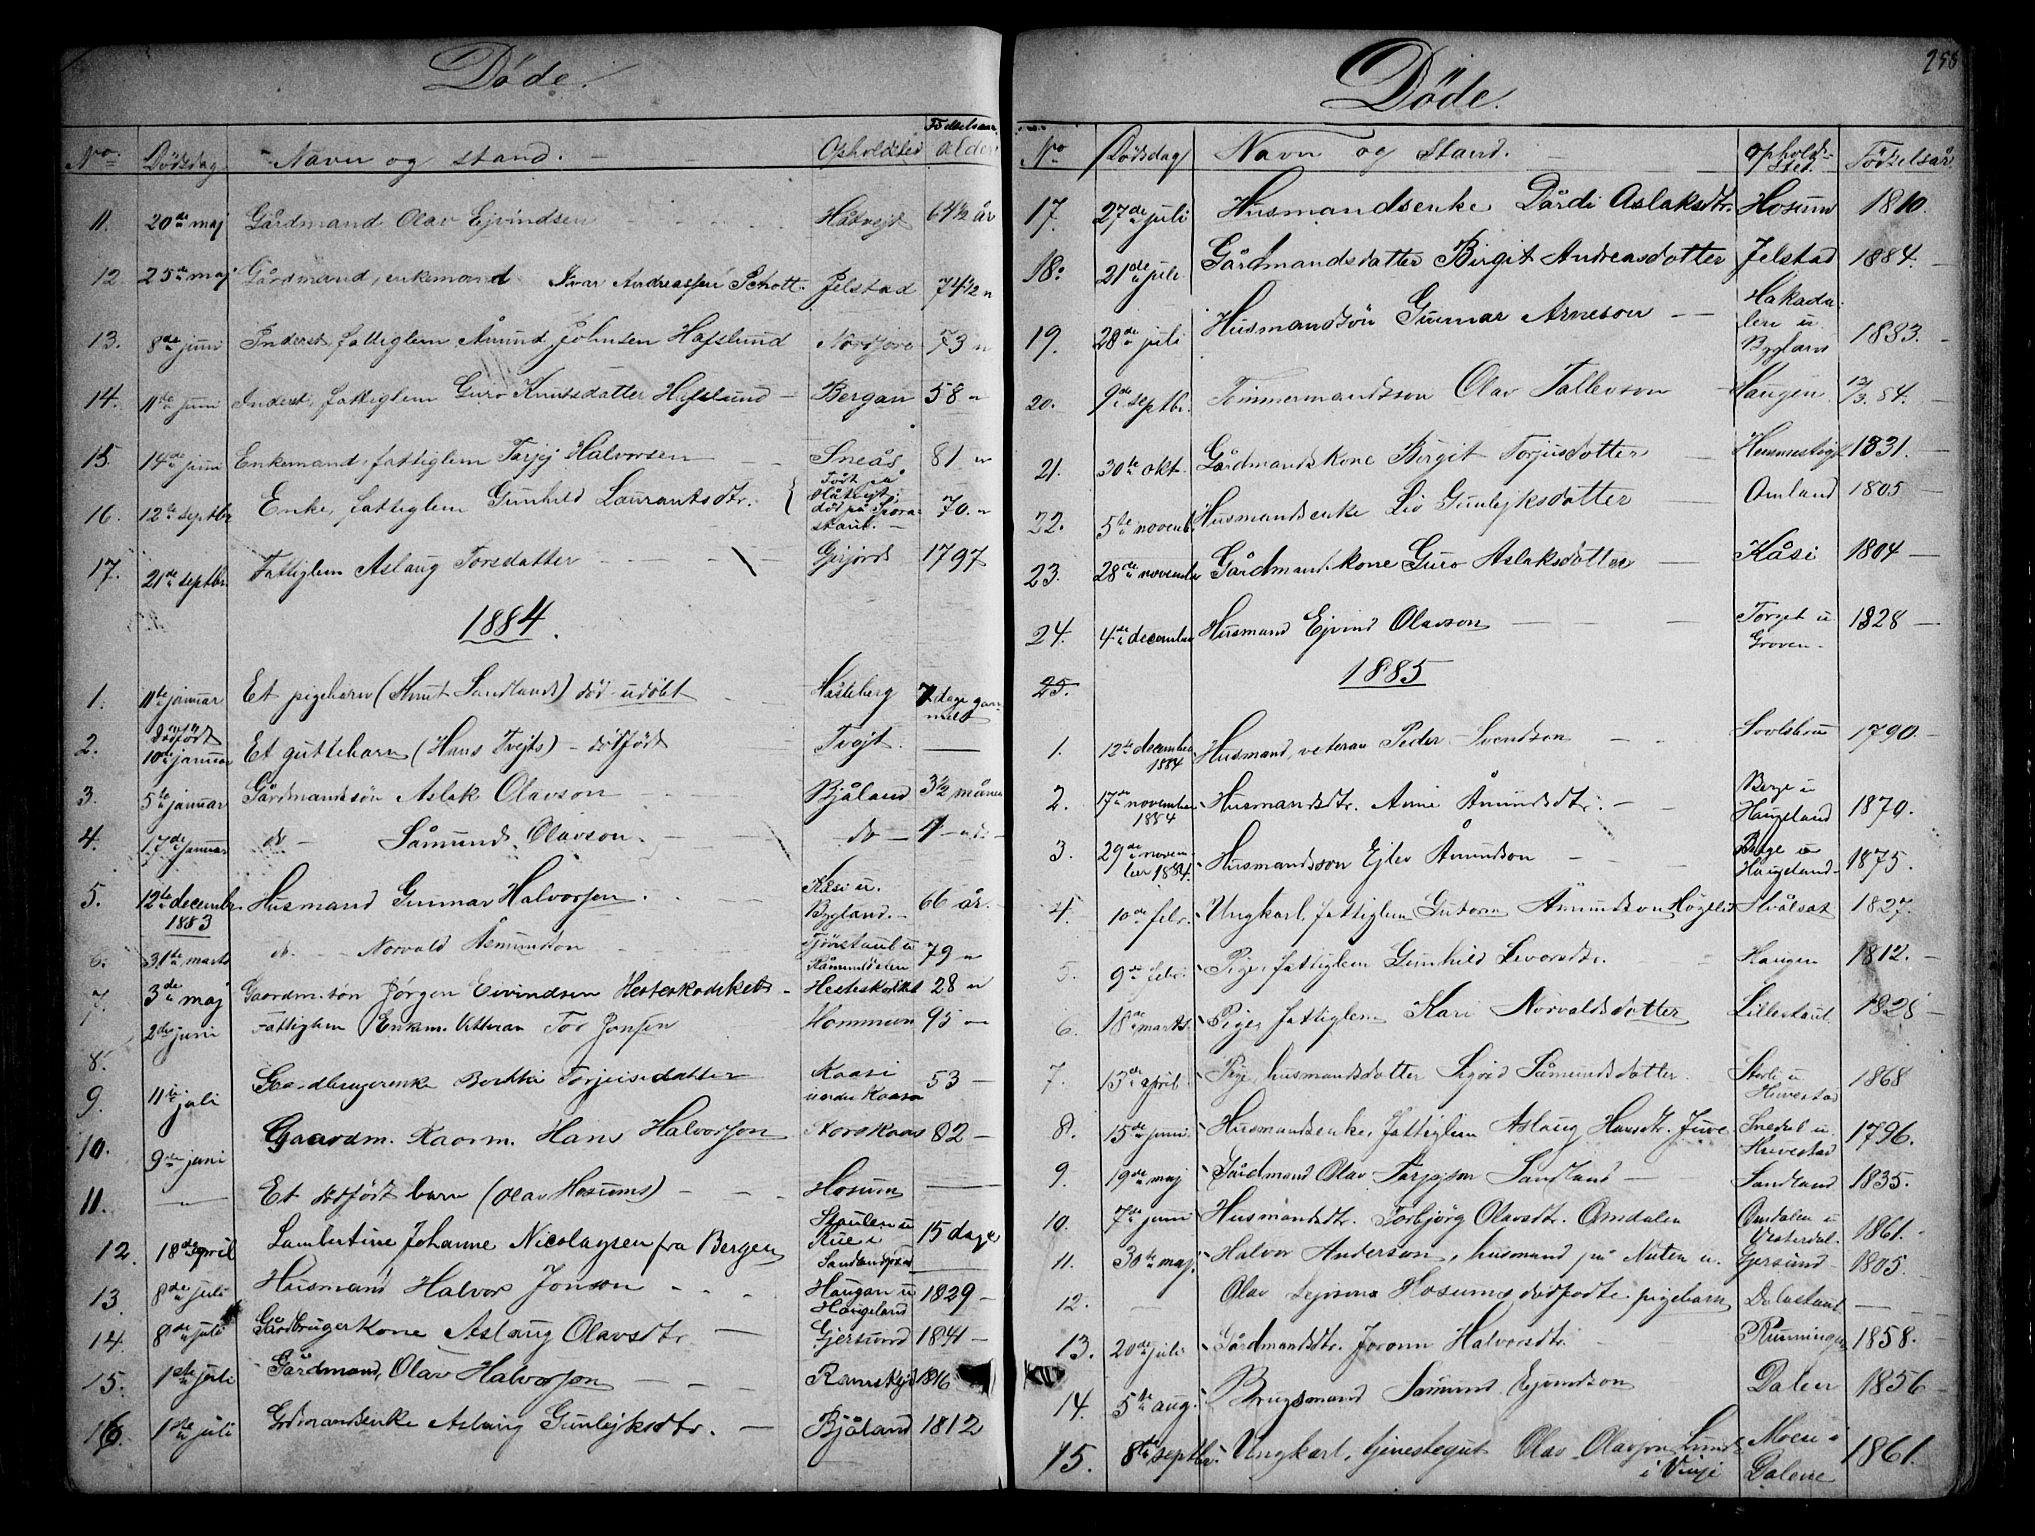 Døde.
No. Dödsdag Navn og stand. Opholdsted Fødselsaar alder
11. 20de maj Gårdmand Olav Ejvindsen Håtvejt 64½ år
12. 25de maj Gårdmand, enkemand Ivar Andreassen Schott. Jelstad 74½ "
13. 8de juni Inderst, fattiglem Åmund Johnsen Hafslund 73 "
14. 11te juni Inderst, fattiglem Guro Knutsdatter Hafslund Bergan 58 "
15. 14de juni Enkemand, fattiglem Tarjej Halvorsen Sneås 81 "
16. 12te septbr Enke, fattiglem Gunhild Laurantsdtr. { Födt på Håtvejt; död på 70. "
17. 21de septbr Fattiglem Aslaug Torsdatter Gejsjord 1797
1884.
1. 11te januar Et pigebarn (Knut Sandlands) död udöbt Håsleberg 7 dage gammelt
2. dødfödt 10de januar Et guttebarn (Hans Tvejts) – dödfödt Tvejt. —
3. 5te januar Gårdmandssön Aslak Olavson Bjåland 3½ måned
4. 17de januar do Såmund Olavson. do
5. 12te decembr. 1883 Husmand Gunnar Halvorsen. Kåsi u. Bygland. 66 år.
6. 31te marts do. Norvald Åsmundson Tjörstaul u Råmunddalen 79 "
7. 3de maj Gaardm.søn Jørgen Eivindsen Hesteskodiket Hesteskodiket 28 "
8. 2de juni Fattiglem Enkm. Vetteran Tov Jonsen Hommeren 95 —
9. 11te juli Gaardbrugerenke Torjeisedatter Kaasi under Kaasa 53 —
10. 9de juni Gaardm. Kaarm. Hans Halvorsen Nordkaas 82 —
11. — Et dödfødt barn (Olav Hosums) Hosum —
12. 18de april Lambertine Johanne Nicolaysen fra Bergen Staulen u Rue i 15 dage
13. 8de juli Husmand Halvor Jonson Haugan u Haugeland 1829 —
14. 8de juli Gårdbrugerkone Aslaug Olavsdtr. Gjersund 1841 —
15. 1ste juli Gårdmand, Olav Halvorson 1816
16. 1ste juli Gårdmandsenke Aslaug Gunlejksdtr. Bjåland 1812
Døde. 258
No Dødsdag Navn og Stand. Opholdssted. Födselsår
17. 27de juli Husmandsenke Dårdi Aslaksdtr. Hosum 1810.
18. 21de juli Gårdmandsdatter Birgit Andreasdotter Jelstad 1884.
19. 28de juli Husmandsön Gunnar Arneson Hakadalen u. Bygland 1883.
20. 9de septbr. Tömmermandsson Olav Tallevson Haugen 12/3. 84.
21. 30te okt. Gårdmandskone Birgit Torjusdotter Hemmestvejt 1831.
22. 5te novemb. Husmandsenke Liv Gunlejksdatter Omland 1805
23. 28de november Gårdmandskone Guro Aslaksdotter Kåsi 1804
24. 4de december Husmand Ejvind Olavson Torget u Groven. 1828
25. 1885
1. 12te december 1884 Husmand, veteran Peder Svendson 1790
2. 17de november 1884 Husmandsdtr. Anne Åmundsdtr. Berge u Haugeland 1870.
3. 29de november 1884. Husmandsson Ejlev Åmundson Berge u Haugeland 1875.
4. 10de febr. Ungkarl, fattiglem Gutorm Åmundson 1827.
5. 9de febr. Pige, fattiglem Gunhild Levorsdtr. Haugen 1812.
6. 18de marts. Pige, fattiglem Kari Norvaldsdatter Lillestaul. 1828
7. 13de april Pige, husmandsdotter Sigrid Såmundsdotter Storli u Huvestad 1868
8. 15de juni. Husmandsenke, fattiglem Aslaug Hansdtr. Juve Snedal u. Huvestad 1796.
9. 19de maj Gårdmand Olav Tarjejson Sandland Sandland. 1835.
10. 7de juni Husmandsdtr. Torbjörg Olavsdtr. Omdalen Omdalen u Vesterdal. 1861.
11. 30te maj. Halvor Anderson, husmand på Nuten u. Gjersund 1805.
12. — Olav Lejsons Hosums dödfödte pigebarn Dalastaul —
13. 20de juli Gårdmandsdtr. Joronn Halvorsdtr. Runningen 1858.
14. 5te aug. Brugsmand Såmund Ejvindson Dalen 1856
15. 8de septbr. Ungkarl, tjenestegut Olav Olavson Lund i Vinje Moen i Dalene 1861.